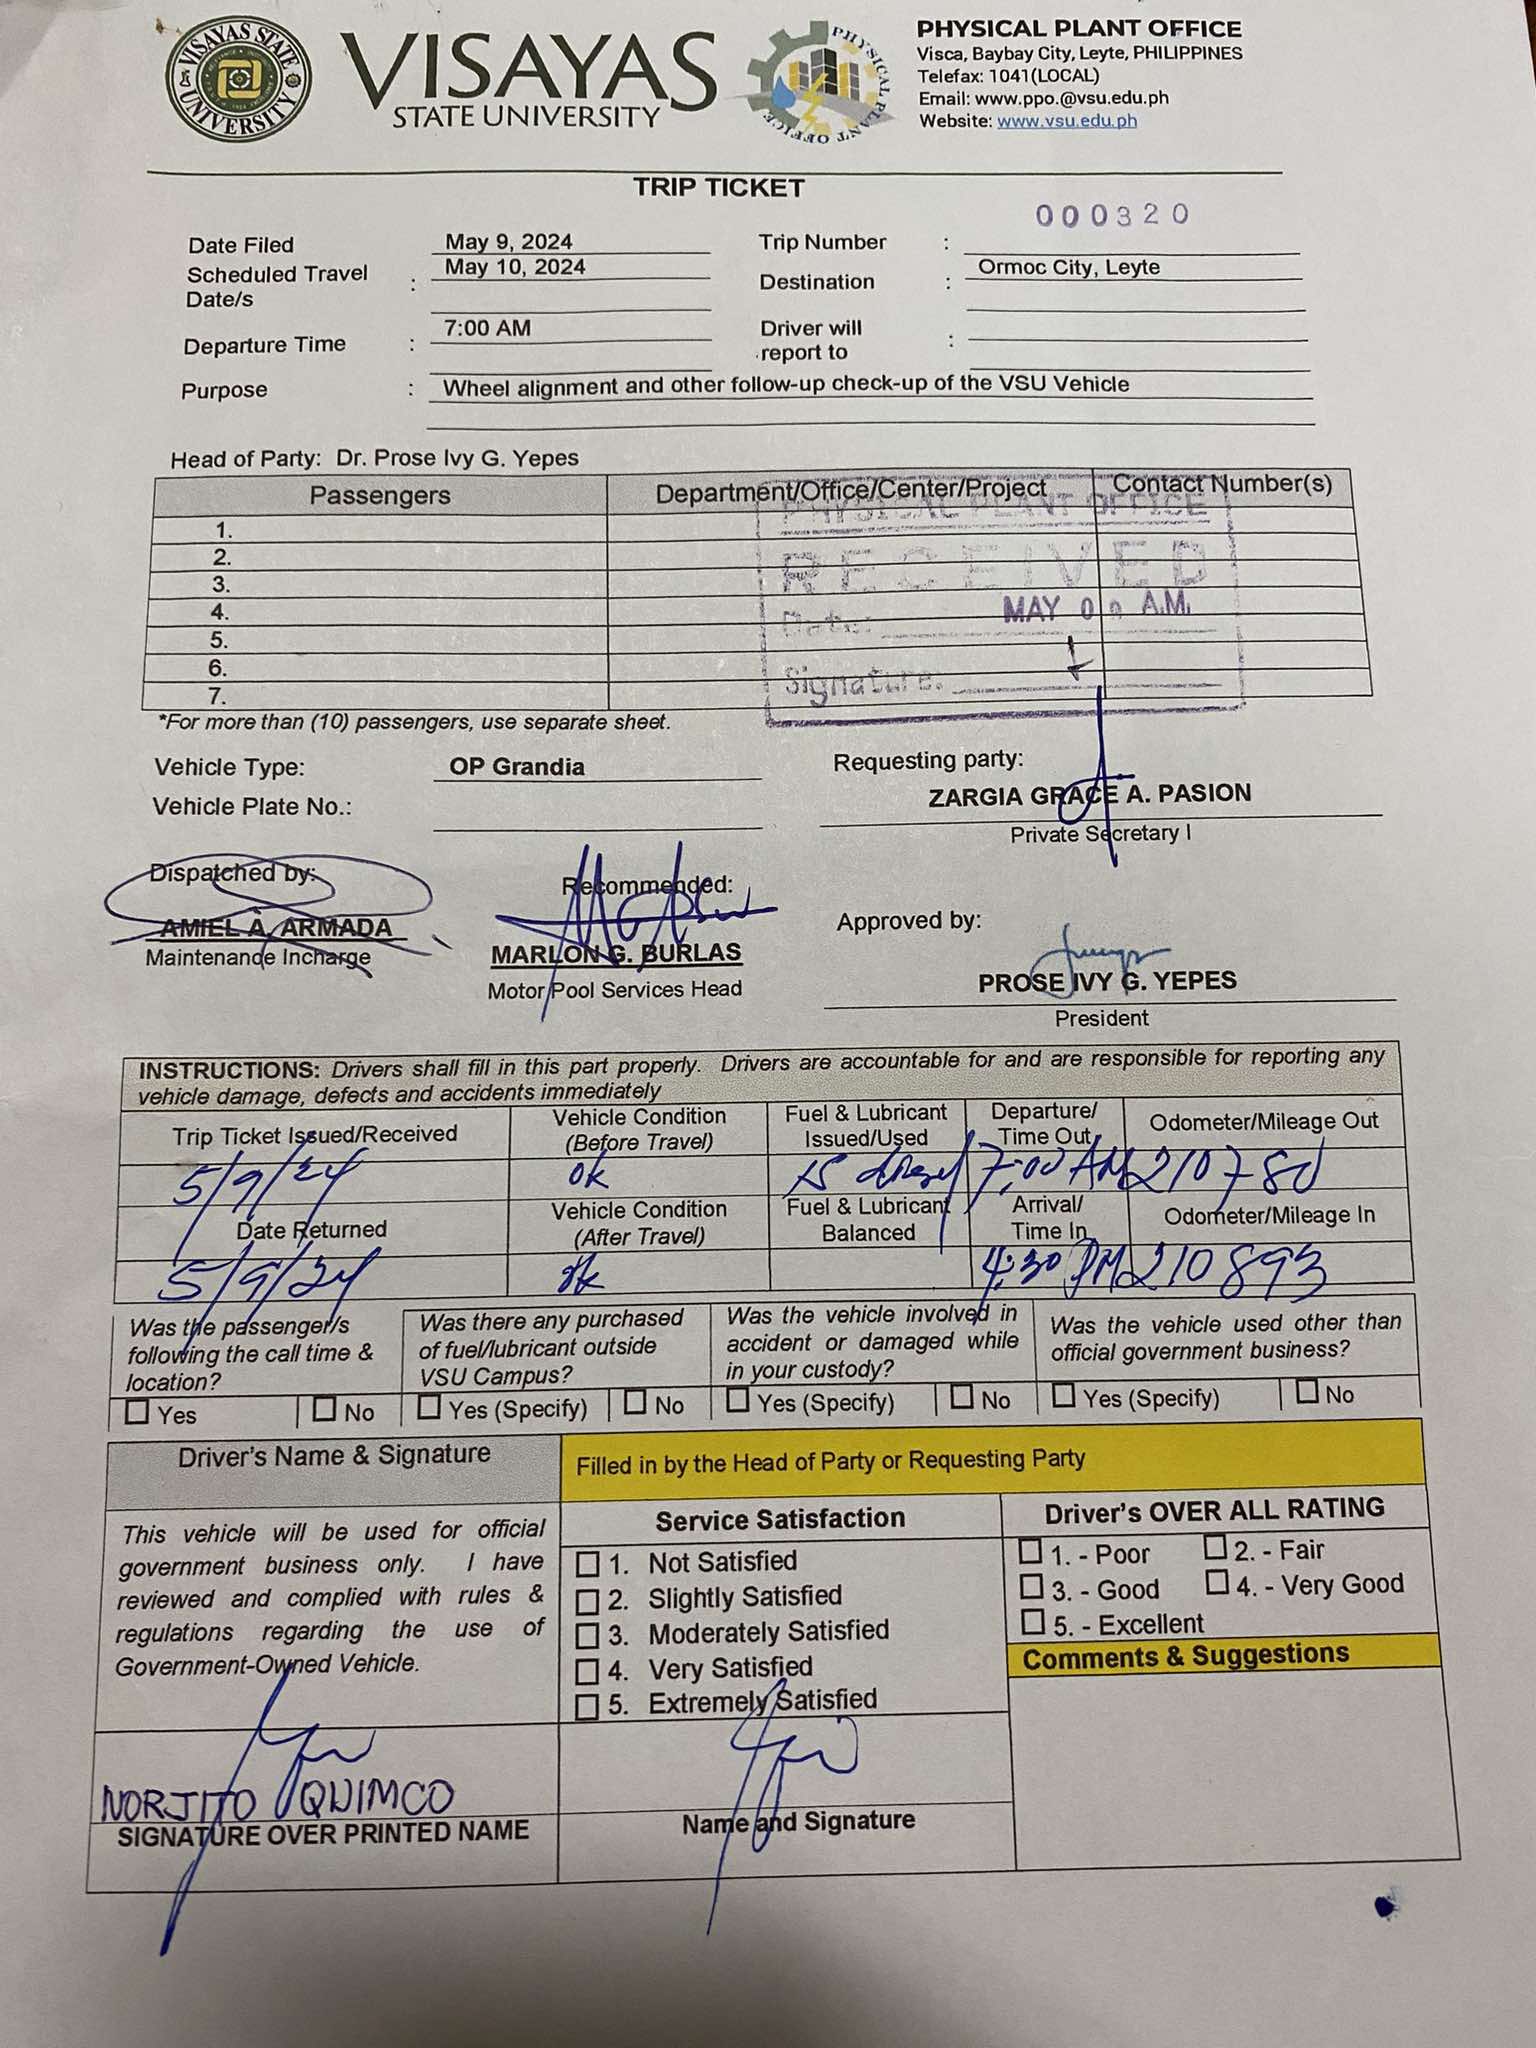 VISAYAS STATE UNIVERSITY
VISAYAS
STATE UNIVERSITY
PHYSICAL PLANT OFFICE
PHYSICAL PLANT OFFICE
Visca, Baybay City, Leyte, PHILIPPINES
Telefax: 1041(LOCAL)
Email: www.ppo.@vsu.edu.ph
Website: www.vsu.edu.ph
TRIP TICKET
000320
Date Filed May 9, 2024 Trip Number :
Scheduled Travel Date/s : May 10, 2024 Destination : Ormoc City, Leyte
Departure Time : 7:00 AM Driver will report to :
Purpose : Wheel alignment and other follow-up check-up of the VSU Vehicle
Head of Party: Dr. Prose Ivy G. Yepes
Passengers Department/Office/Center/Project Contact Number(s)
1.
2.
3.
4.
5.
6.
7.
PHYSICAL PLANT OFFICE
RECEIVED
Date: MAY 0 A.M.
Signature:
*For more than (10) passengers, use separate sheet.
Vehicle Type: OP Grandia
Vehicle Plate No.:
Requesting party:
ZARGIA GRACE A. PASION
Private Secretary I
Dispatched by:
AMIEL A. ARMADA
Maintenance Incharge
Recommended:
MARLON G. BURLAS
Motor Pool Services Head
Approved by:
PROSE IVY G. YEPES
President
INSTRUCTIONS: Drivers shall fill in this part properly. Drivers are accountable for and are responsible for reporting any
vehicle damage, defects and accidents immediately
Trip Ticket Issued/Received Vehicle Condition (Before Travel) Fuel & Lubricant Issued/Used Departure/ Time Out Odometer/Mileage Out
5/9/24 ok 15 diesel 7:00 AM 210780
Date Returned Vehicle Condition (After Travel) Fuel & Lubricant Balanced Arrival/ Time In Odometer/Mileage In
5/9/24 ok 4:30 PM 210893
Was the passenger/s following the call time & location?
Yes No
Was there any purchased of fuel/lubricant outside VSU Campus?
Yes (Specify) No
Was the vehicle involved in accident or damaged while in your custody?
Yes (Specify) No
Was the vehicle used other than official government business?
Yes (Specify) No
Driver's Name & Signature
Filled in by the Head of Party or Requesting Party
This vehicle will be used for official
government business only. I have
reviewed and complied with rules &
regulations regarding the use of
Government-Owned Vehicle.
NORJITO QUIMCO
SIGNATURE OVER PRINTED NAME
Service Satisfaction
1. Not Satisfied
2. Slightly Satisfied
3. Moderately Satisfied
4. Very Satisfied
5. Extremely Satisfied
Name and Signature
Driver's OVER ALL RATING
1. - Poor 2. - Fair
3. - Good 4. - Very Good
5. - Excellent
Comments & Suggestions